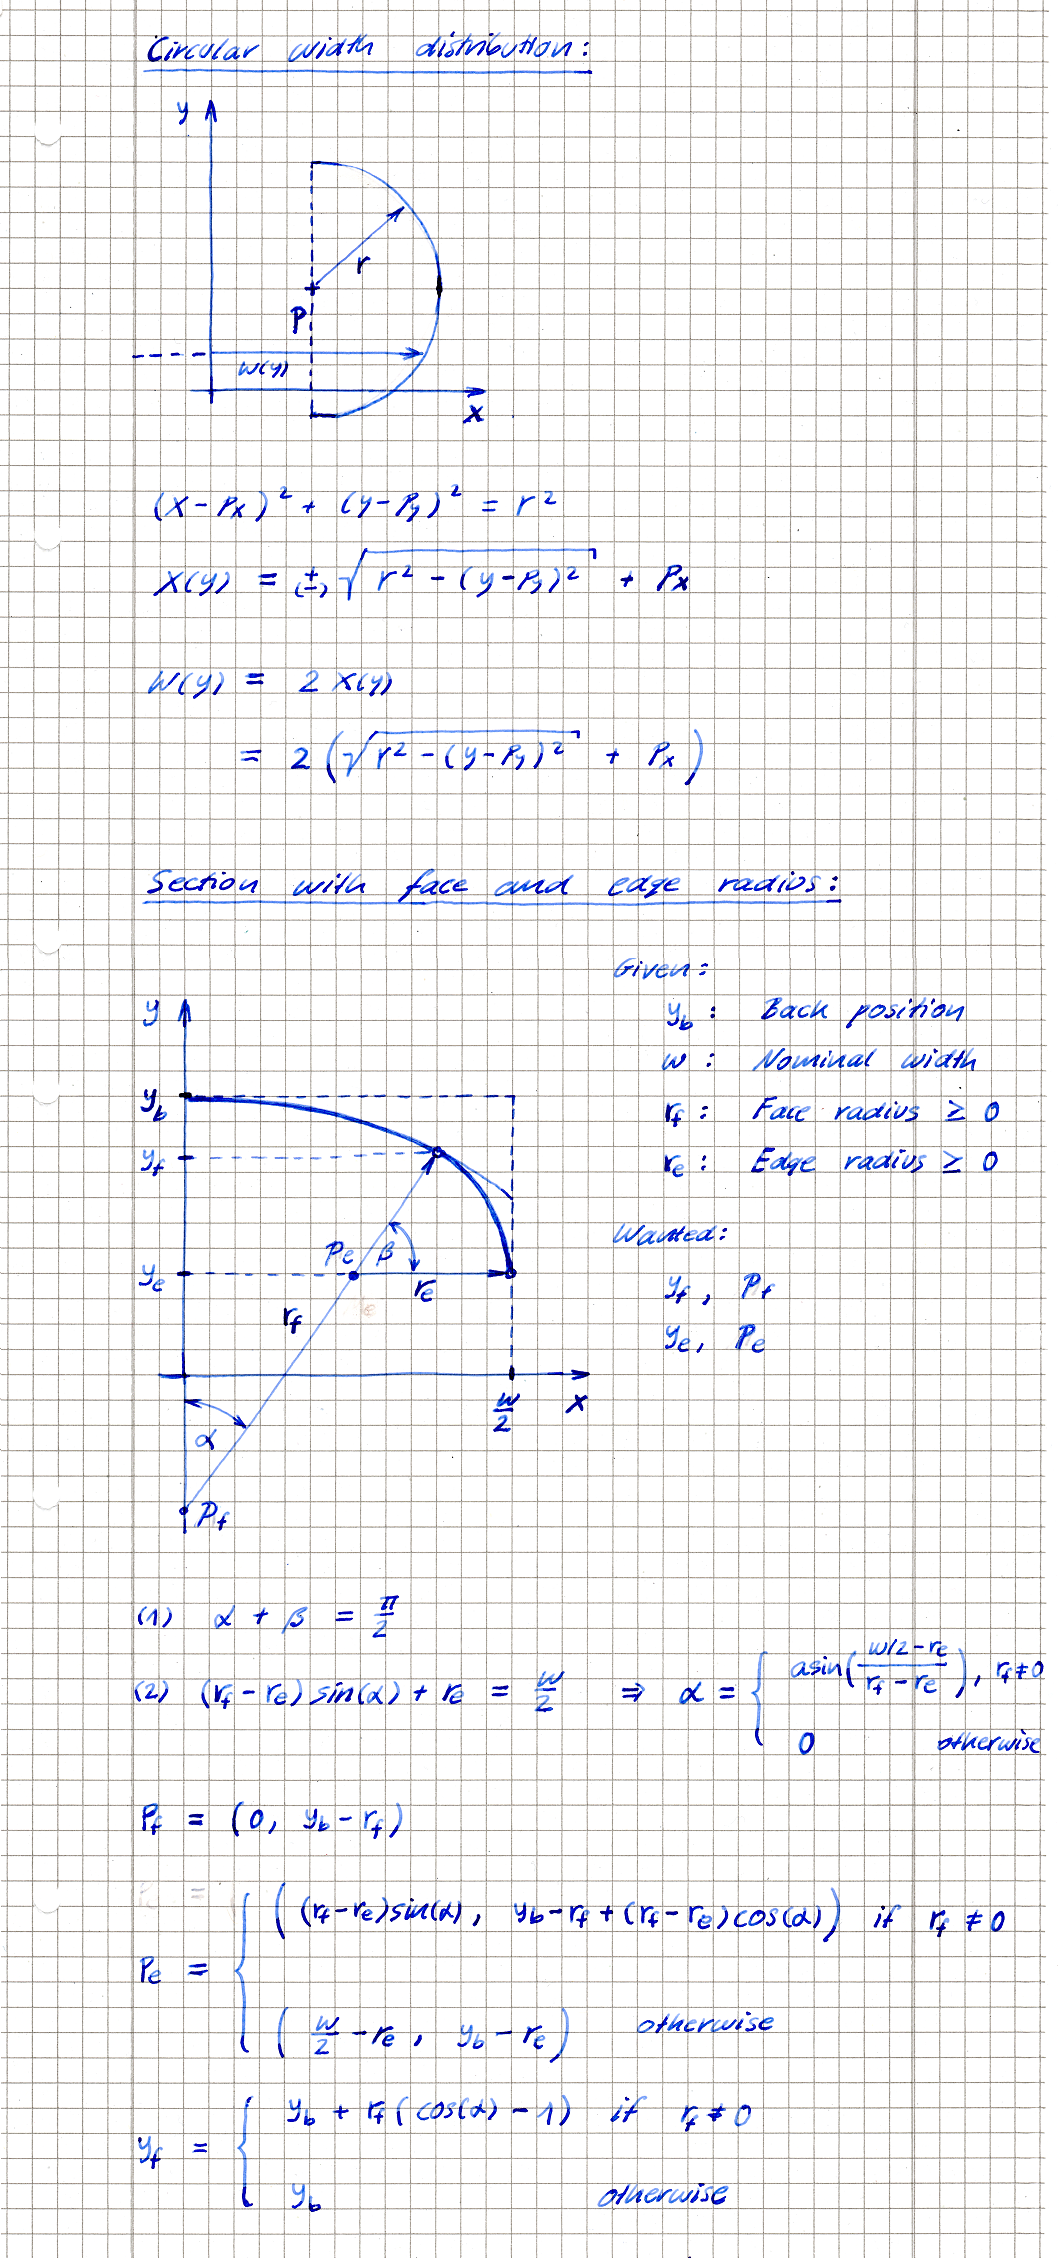 Circular width distribution:
y
r
P
w(y)
x
(x - Px)² + (y - Py)² = r²
x(y) = (±) √(r² - (y - Py)²) + Px
w(y) = 2 x(y)
= 2 (√(r² - (y - Py)²) + Px)
Section with face and edge radius:
Given:
y
yb : Back position
w : Nominal width
yb
rf : Face radius ≥ 0
yf
re : Edge radius ≥ 0
Wanted:
Pe β
ye
re
yf, Pf
rf
ye, Pe
w/2
x
α
Pf
(1) α + β = π/2
(2) (rf - re) sin(α) + re = w/2 ⇒ α = { asin((w/2 - re)/(rf - re)), rf ≠ 0
0 otherwise
Pf = (0, yb - rf)
Pe = { ((rf - re) sin(α), yb - rf + (rf - re) cos(α)) if rf ≠ 0
(w/2 - re, yb - re) otherwise
yf = { yb + rf (cos(α) - 1) if rf ≠ 0
yb otherwise